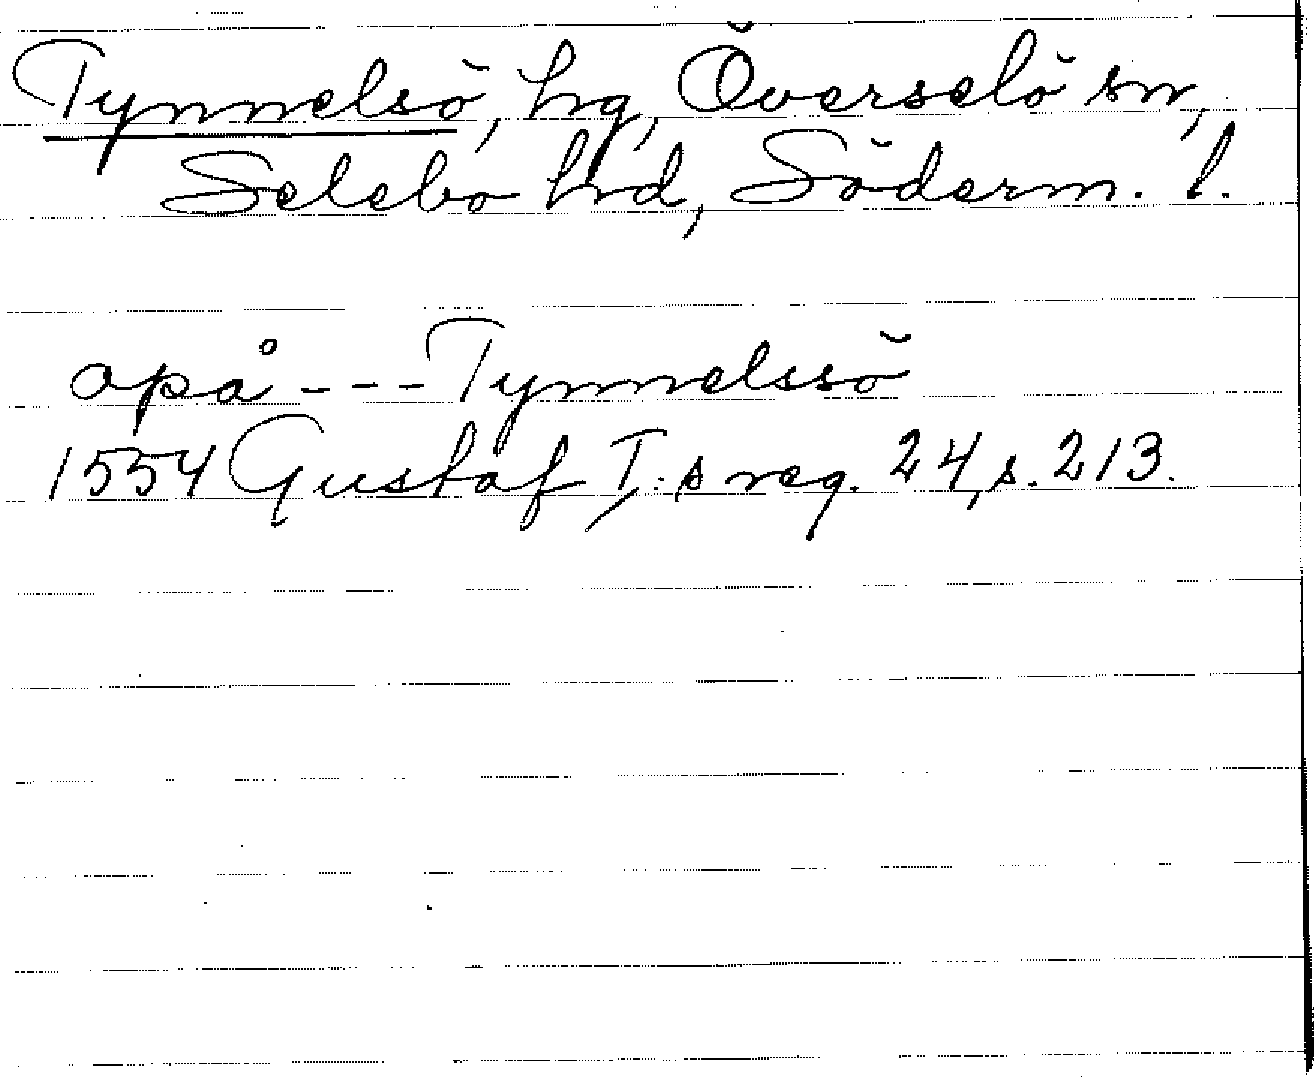 Tynnelsö, hg, Överselö sn,
Selebo hrd, Söderm. l.
opå --- Tynnelssö
1554 Gustaf I:s reg. 24, s. 213.